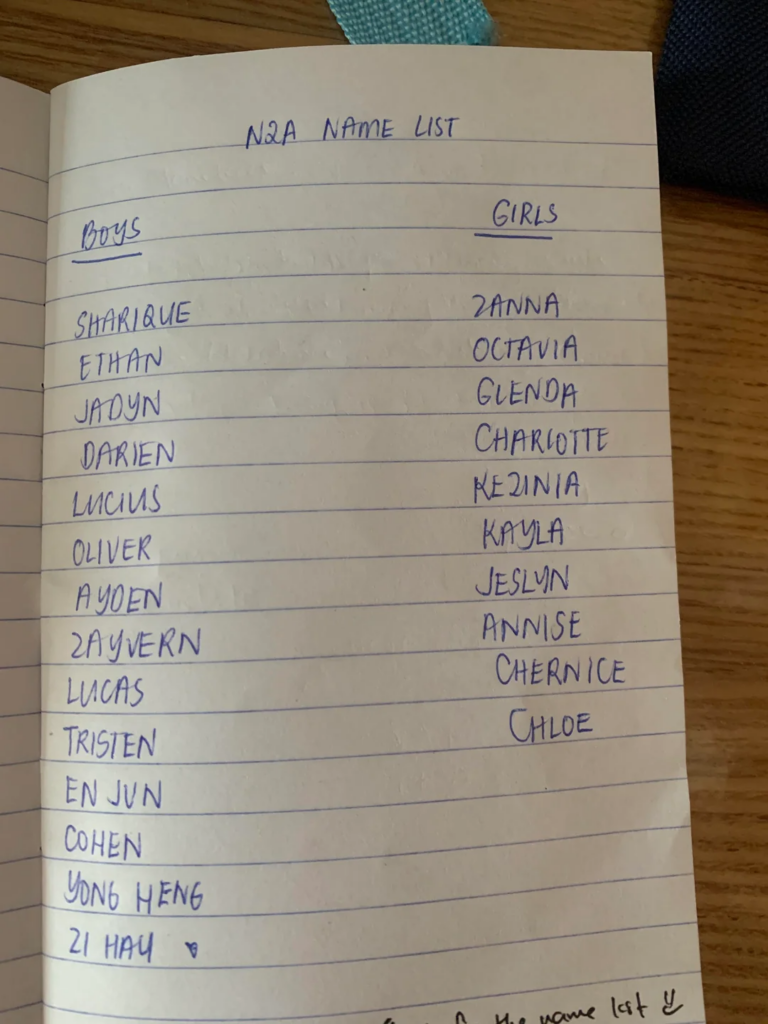 N2A NAME LIST
BOYS
SHARIQUE
ETHAN
JADYN
DARIEN
LUCIUS
OLIVER
AYDEN
ZAYVERN
LUCAS
TRISTEN
EN JUN
COHEN
YONG HENG
ZI HAU
GIRLS
ZANNA
OCTAVIA
GLENDA
CHARLOTTE
KEZINIA
KAYLA
JESLYN
ANNISE
CHERNICE
CHLOE
the name list